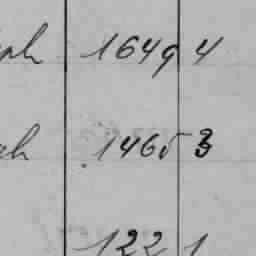 ph 1649 4
h 1465 3
122 1